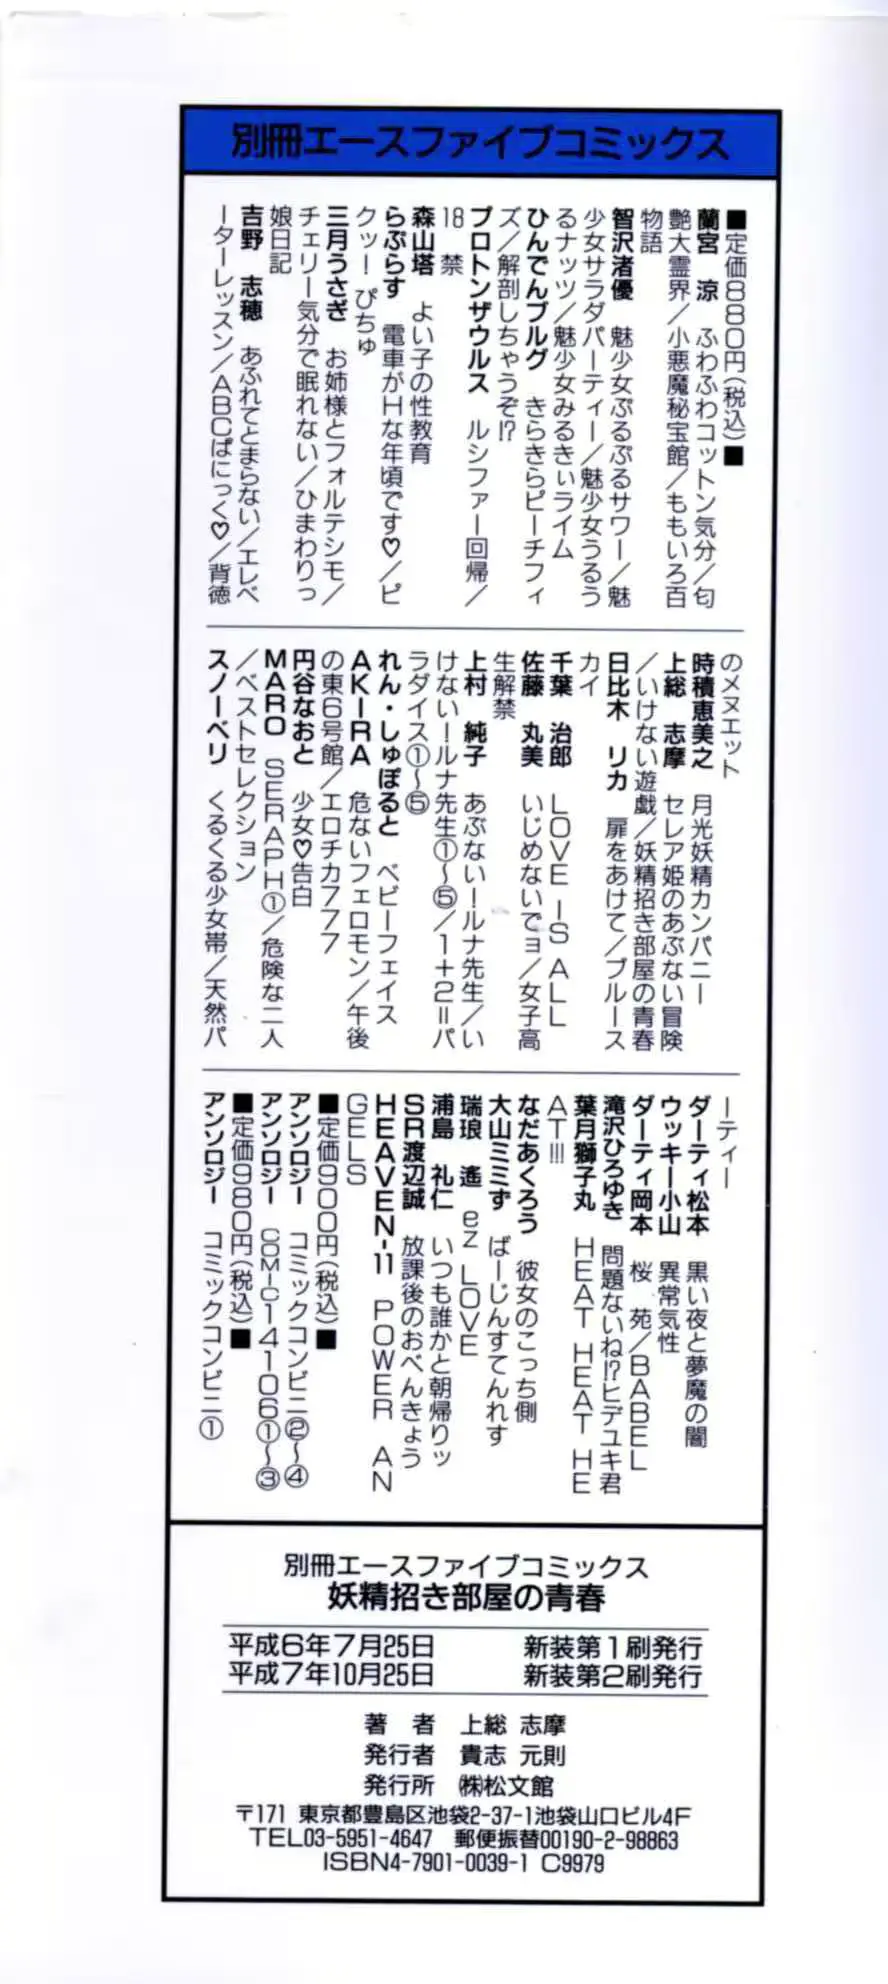 別冊エースファイブコミックス
■定価880円(税込)■
蘭宮 涼 ふわふわコットン気分/匂
艶大霊界/小悪魔秘宝館/ももいろ百
物語
智沢渚優 魅少女ぷるぷるサワー/魅
少女サラダパーティー/魅少女うるう
るナッツ/魅少女みるきぃライム
ひんでんブルグ きらきらピーチフィ
ズ/解剖しちゃうぞ!?
プロトンザウルス ルシファー回帰/
18禁
森山塔 よい子の性教育
らぷらす 電車がHな年頃です♡/ピ
クッ!ぴちゅ
三月うさぎ お姉様とフォルテシモ/
チェリー気分で眠れない/ひまわりっ
娘日記
吉野 志穂 あふれてとまらない/エレベ
ーターレッスン/ABCぱにっく♡/背徳
のメヌエット
時積恵美之 月光妖精カンパニー
上総 志摩 セレア姫のあぶない冒険
/いけない遊戯/妖精招き部屋の青春
日比木 リカ 扉をあけて/ブルース
カイ
千葉 治郎 LOVE IS ALL
佐藤 丸美 いじめないでョ/女子高
生解禁
上村 純子 あぶない!ルナ先生/い
けない!ルナ先生①~⑤/1+2=パ
ラダイス①~⑤
れん・しゅぽると ベビーフェイス
AKIRA 危ないフェロモン/午後
の東6号館/エロチカ777
円谷なおと 少女♡告白
MARO SERAPH①/危険な二人
/ベストセレクション
スノーベリ くるくる少女帯/天然パ
ーティー
ダーティ松本 黒い夜と夢魔の闇
ウッキー小山 異常気性
ダーティ岡本 桜 苑/BABEL
滝沢ひろゆき 問題ないね!?ヒデユキ君
葉月獅子丸 HEAT HEAT HE
AT!!!
なだあくろう 彼女のこっち側
大山ミミず ばーじんすてんれす
瑞浪 遙 ez LOVE
浦島 礼仁 いつも誰かと朝帰りッ
SR渡辺誠 放課後のおべんきょう
HEAVEN-11 POWER AN
GELS
■定価900円(税込)■
アンソロジー コミックコンビニ②~④
アンソロジー COMIC14106①~③
■定価980円(税込)■
アンソロジー コミックコンビニ①
別冊エースファイブコミックス
妖精招き部屋の青春
平成6年7月25日 新装第1刷発行
平成7年10月25日 新装第2刷発行
著 者 上総 志摩
発行者 貴志 元則
発行所 ㈱松文館
〒171 東京都豊島区池袋2-37-1池袋山口ビル4F
TEL03-5951-4647 郵便振替00190-2-98863
ISBN4-7901-0039-1 C9979